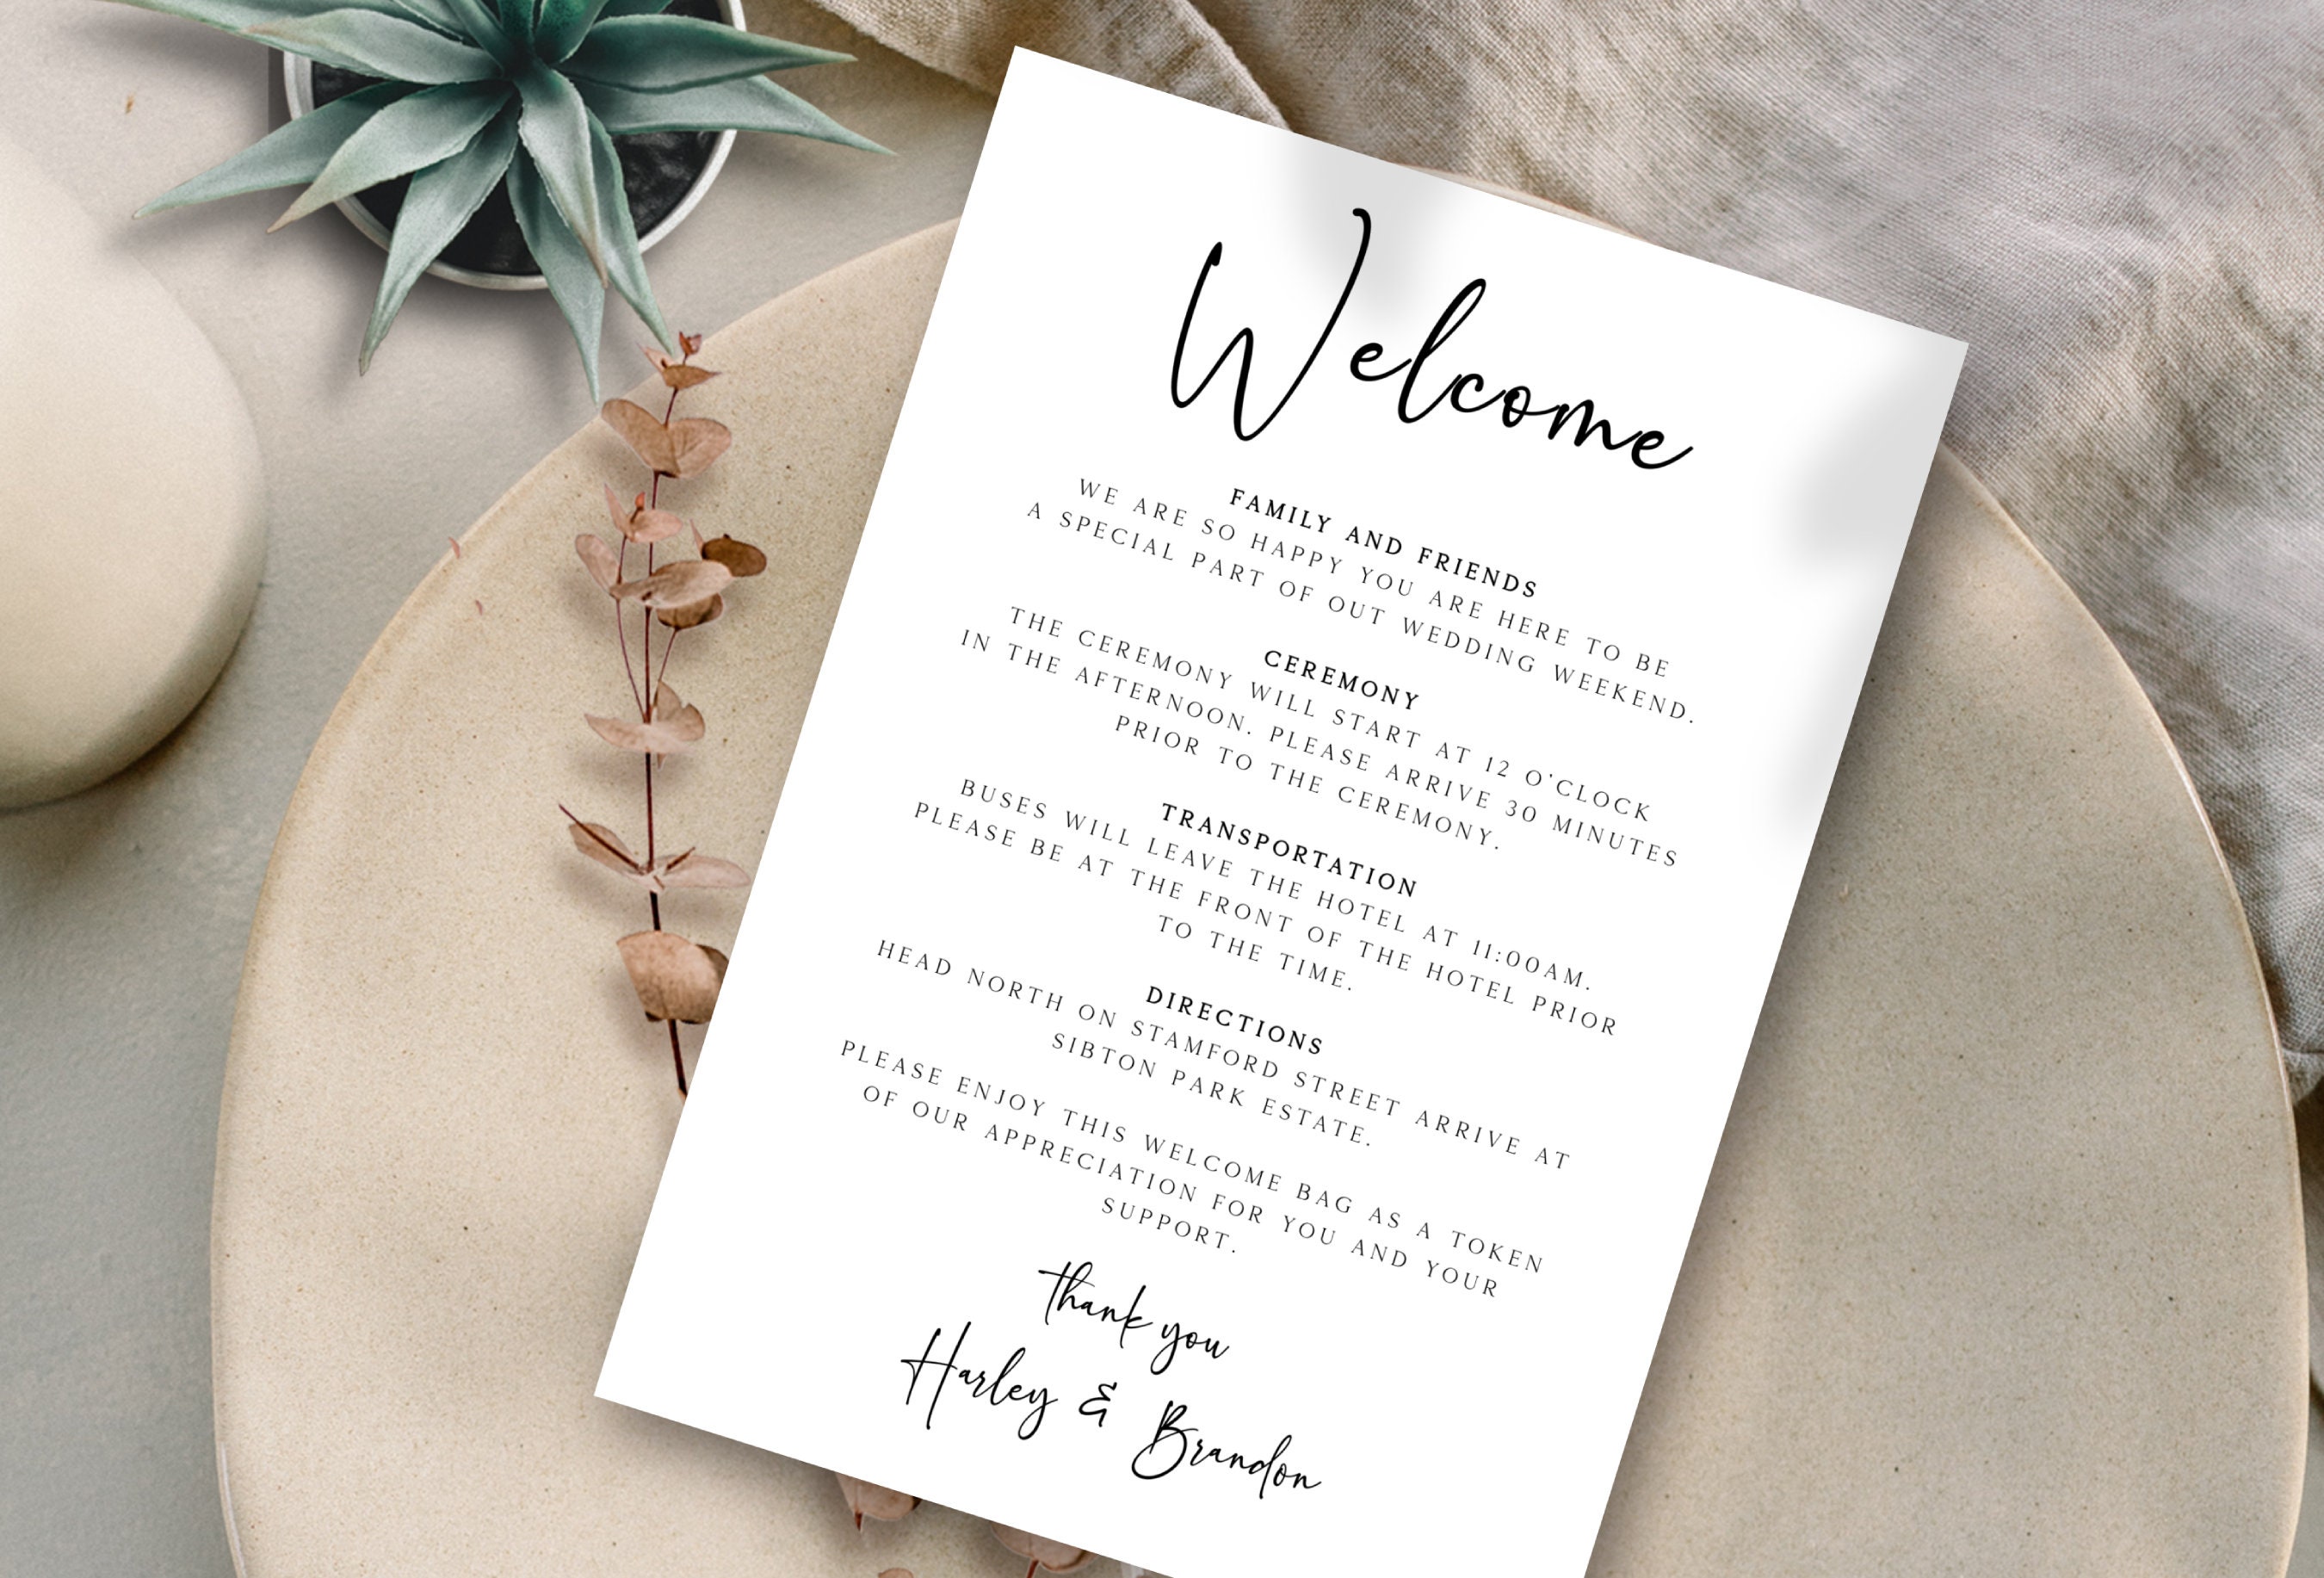 Welcome
FAMILY AND FRIENDS
WE ARE SO HAPPY YOU ARE HERE TO BE
A SPECIAL PART OF OUT WEDDING WEEKEND.
CEREMONY
THE CEREMONY WILL START AT 12 O'CLOCK
IN THE AFTERNOON. PLEASE ARRIVE 30 MINUTES
PRIOR TO THE CEREMONY.
TRANSPORTATION
BUSES WILL LEAVE THE HOTEL AT 11:00AM.
PLEASE BE AT THE FRONT OF THE HOTEL PRIOR
TO THE TIME.
DIRECTIONS
HEAD NORTH ON STAMFORD STREET ARRIVE AT
SIBTON PARK ESTATE.
PLEASE ENJOY THIS WELCOME BAG AS A TOKEN
OF OUR APPRECIATION FOR YOU AND YOUR
SUPPORT.
thank you
Harley & Brandon